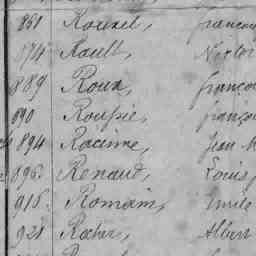 861 Rouxel, francois
874 Roult, Victor
889 Roux, françois
890 Roupie, françois
894 Racinne, Jean
896 Renaud, Louis,
916 Romain, Emile
921 Rocher, Albert